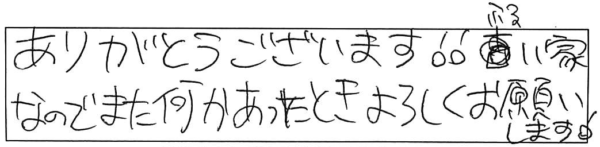 ふる
ありがとうございます!! 古い家
なのでまた何かあったときよろしくお願い
します!